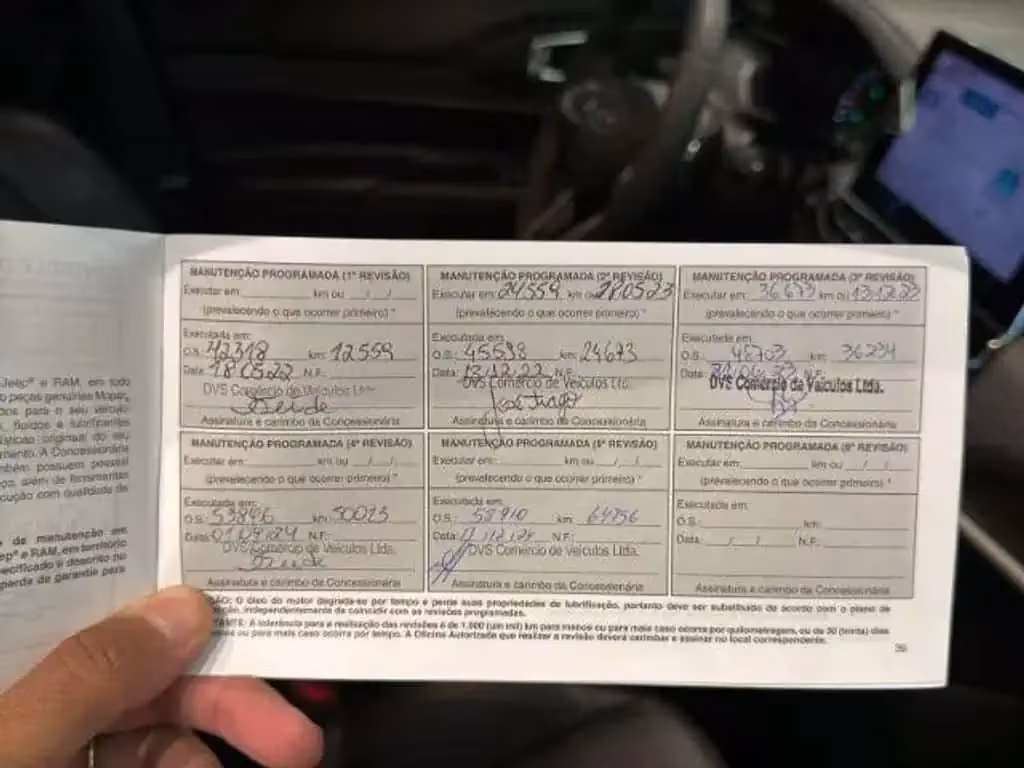 Jeep® e RAM, em todo
peças genuínas Mopar,
dos para o seu veículo
fluidos e lubrificantes
originais do seu
A Concessionária
também possuem pessoal
além de ferramentas
com qualidade de
de manutenção em
e RAM, em território
especificado e descrito no
perda de garantia para
MANUTENÇÃO PROGRAMADA (1ª REVISÃO)
Executar em: km ou / /
(prevalecendo o que ocorrer primeiro) *
Executada em:
O.S.: 42318 km: 12559
Data: 18 05 22 N.F.
DVS Comércio de Veículos Ltda.
Assinatura e carimbo da Concessionária
MANUTENÇÃO PROGRAMADA (2ª REVISÃO)
Executar em: 24559 km ou 28 05 23
(prevalecendo o que ocorrer primeiro) *
Executada em:
O.S.: 45598 km: 24673
Data: 13.12.22 N.F.
DVS Comércio de Veículos Ltda.
José Tiago
Assinatura e carimbo da Concessionária
MANUTENÇÃO PROGRAMADA (3ª REVISÃO)
Executar em: 36.673 km ou 13.12.23
(prevalecendo o que ocorrer primeiro) *
Executada em:
O.S.: 48703 km: 36234
Data: N.F.
DVS Comércio de Veículos Ltda.
Assinatura e carimbo da Concessionária
MANUTENÇÃO PROGRAMADA (4ª REVISÃO)
Executar em: km ou / /
(prevalecendo o que ocorrer primeiro) *
Executada em:
O.S.: 53896 km: 50023
Data: N.F.
DVS Comércio de Veículos Ltda.
Assinatura e carimbo da Concessionária
MANUTENÇÃO PROGRAMADA (5ª REVISÃO)
Executar em: km ou / /
(prevalecendo o que ocorrer primeiro) *
Executada em:
O.S.: 58910 km: 64756
Data: N.F.
DVS Comércio de Veículos Ltda.
Assinatura e carimbo da Concessionária
MANUTENÇÃO PROGRAMADA (6ª REVISÃO)
Executar em: km ou / /
(prevalecendo o que ocorrer primeiro) *
Executada em:
O.S.: km:
Data: / / N.F.
Assinatura e carimbo da Concessionária
O óleo do motor degrada-se por tempo e perde suas propriedades de lubrificação, portanto deve ser substituído de acordo com o plano de
independentemente de coincidir com as revisões programadas.
A tolerância para a realização das revisões é de 1.000 (um mil) km para menos ou para mais caso ocorra por quilometragem, ou de 30 (trinta) dias
ou para mais caso ocorra por tempo. A Oficina Autorizada que realizar a revisão deverá carimbar e assinar no local correspondente.